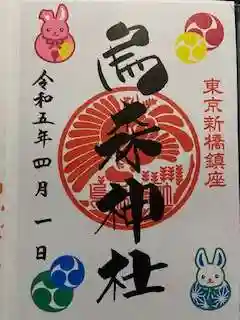 東京新橋鎮座
烏森神社
令和五年四月一日